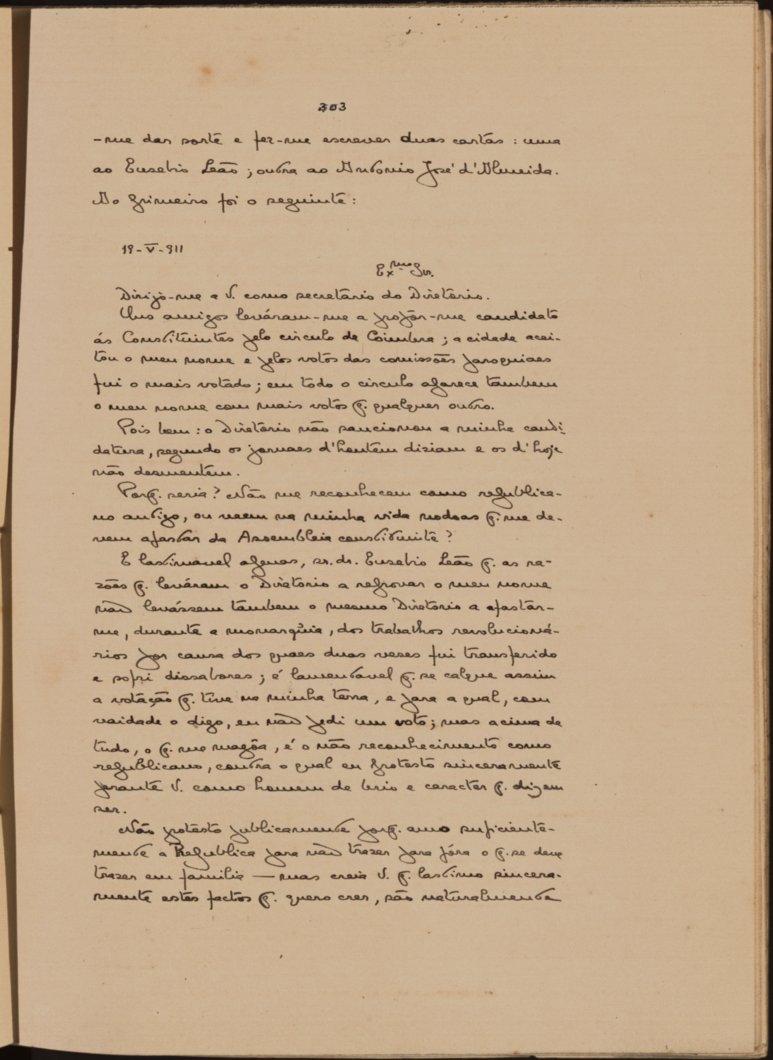 303
-me dar sorte e fez-me escrever duas cartas: uma
ao Eusebio Leão; outra ao Antonio José d'Almeida.
Ao primeiro foi o seguinte:
19-V-911
Exmo Sr.
Dirijo-me a V. como secretário do Diretório.
Uns amigos leváram-me a propôr-me candidato
ás Constituintes pelo circulo de Coimbra; a cidade acei-
tou o meu nome e pelos votos das comissões paroquiaes
fui o mais votado; em todo o circulo aparece tambem
o meu nome com mais votos q. qualquer outro.
Pois bem: o Diretório não sancionou a minha candi-
datura, segundo os jornaes d'hontem diziam e os d'hoje
não desmentem.
Porq. seria? Não me reconhecem como republica-
no antigo, ou veem na minha vida nodoas q. me de-
vem afastar da Assembleia constituinte?
É lastimavel apenas, sr. dr. Eusebio Leão q. as ra-
zões q. leváram o Diretório a reprovar o meu nome
não levássem tambem o mesmo Diretório a afastar-
me, durante a monarquia, dos trabalhos revolucioná-
rios por causa dos quaes duas vezes fui transferido
e sofri dissabores; é lamentavel q. se calque assim
a votação q. tive na minha terra, e para a qual, com
vaidade o digo, eu não pedi um voto; mas acima de
tudo, o q. me magôa, é o não reconhecimento como
republicano, contra o qual eu protesto sinceramente
perante V. como homem de brio e caracter q. dizem
ser.
Não protesto publicamente porq. amo suficiente-
mente a Republica para não trazer para fóra o q. se deve
trazer em familia — mas creia V. q. lastimo sincera-
mente estes factos q. quero crer, são naturalmente